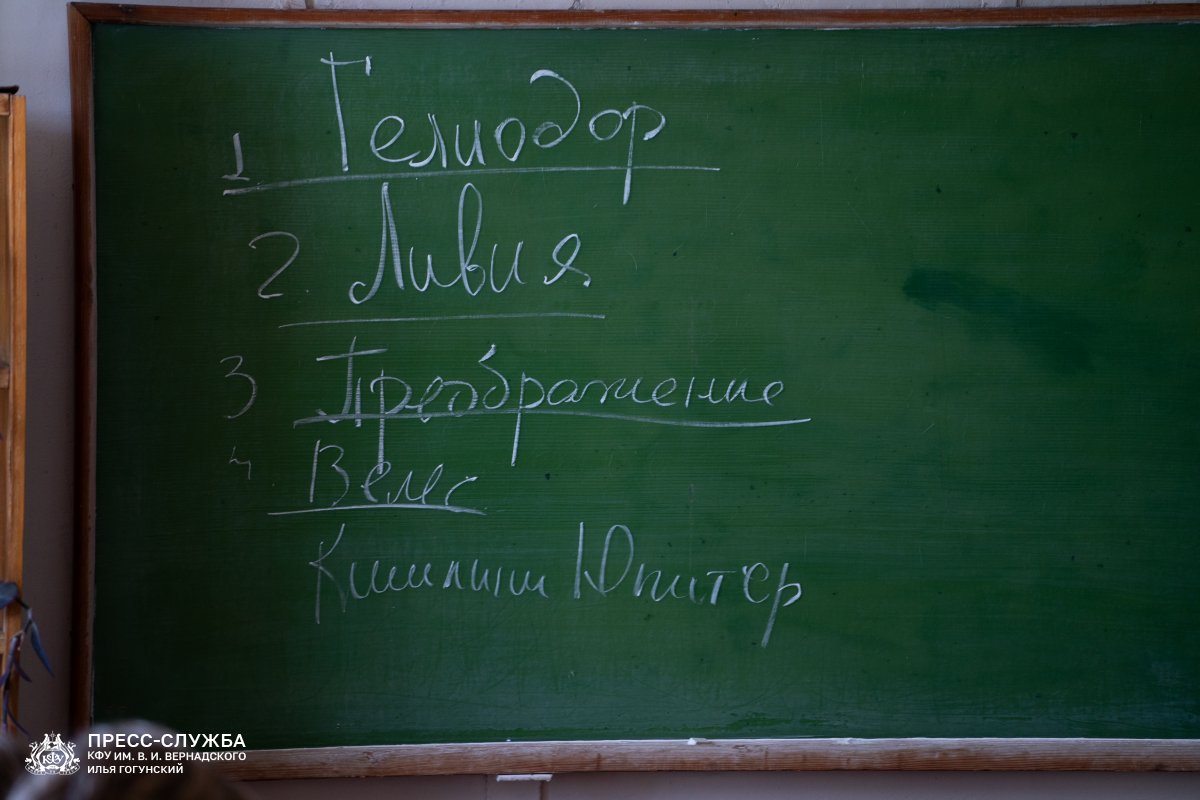 1 Гелиодор
2. Ливия.
3 Преображение
4 Велес
Юпитер
ПРЕСС-СЛУЖБА
КФУ ИМ. В. И. ВЕРНАДСКОГО
ИЛЬЯ ГОГУНСКИЙ